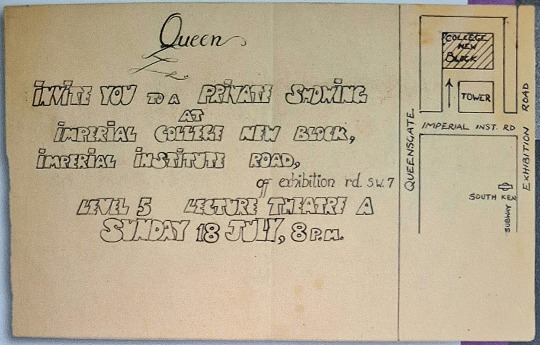 Queen
INVITE YOU TO A PRIVATE SHOWING
AT
IMPERIAL COLLEGE NEW BLOCK,
IMPERIAL INSTITUTE ROAD,
off exhibition rd. s.w.7
LEVEL 5 LECTURE THEATRE A
SUNDAY 18 JULY, 8 P.M.
COLLEGE
NEW
BLOCK
TOWER
IMPERIAL INST. RD
QUEENSGATE
EXHIBITION ROAD
SOUTH KEN
SUBWAY